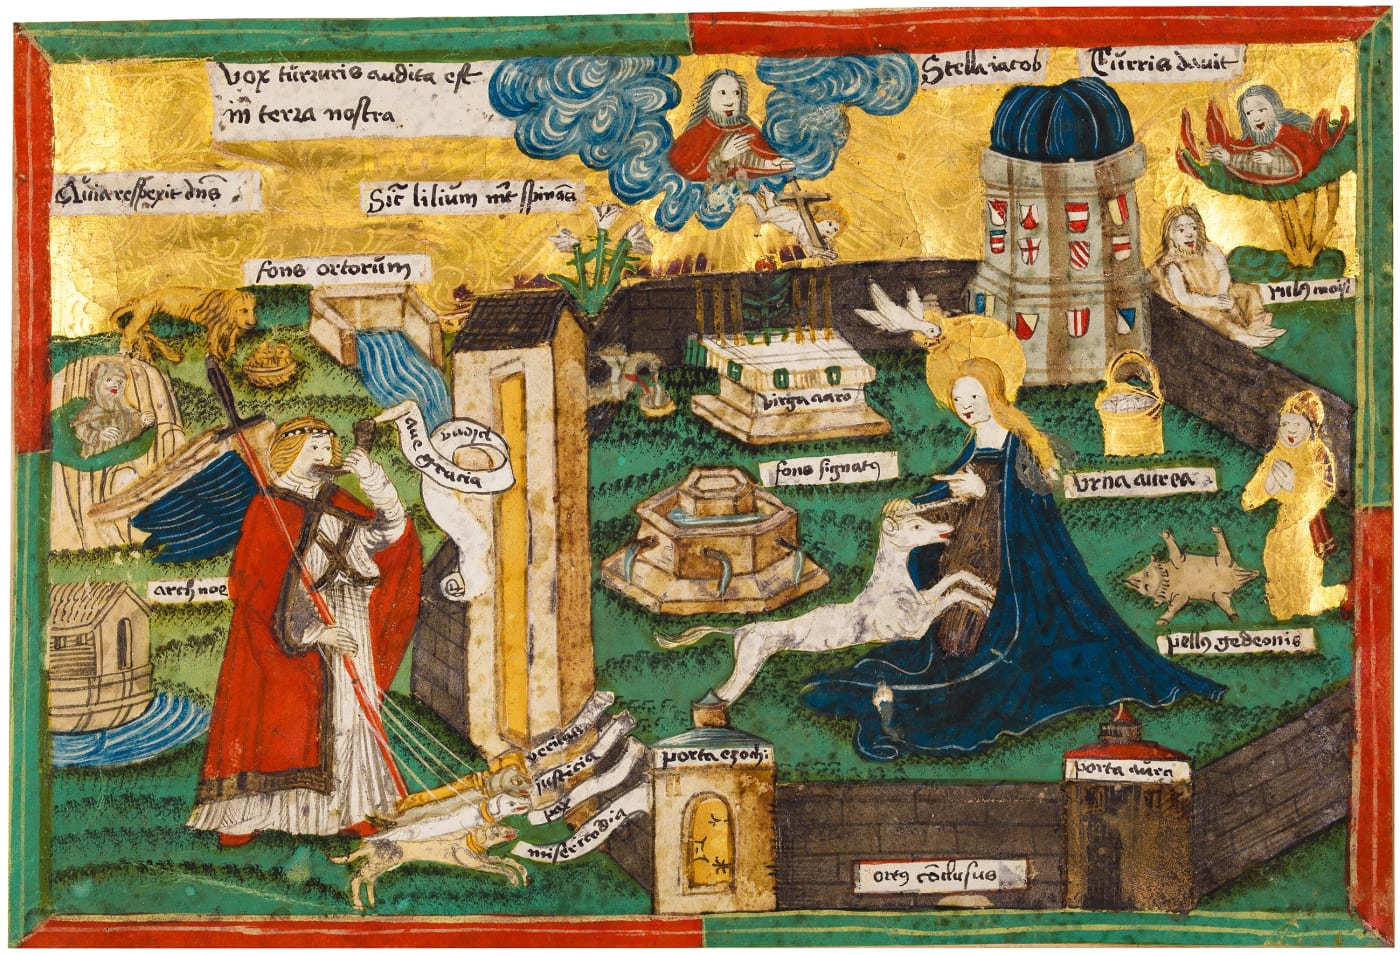 Vox turturis audita est
in terra nostra
Stella iacob
Turris davit
Quia respexit dns
Sic lilium int spinas
fons ortorum
rubg moysi
ave gracia
virga aaro
fons signatg
urna aurea
arch noe
pellg gedeonis
veritas
justicia
pax
misericodia
porta ezechi
porta aura
ortg coclusus